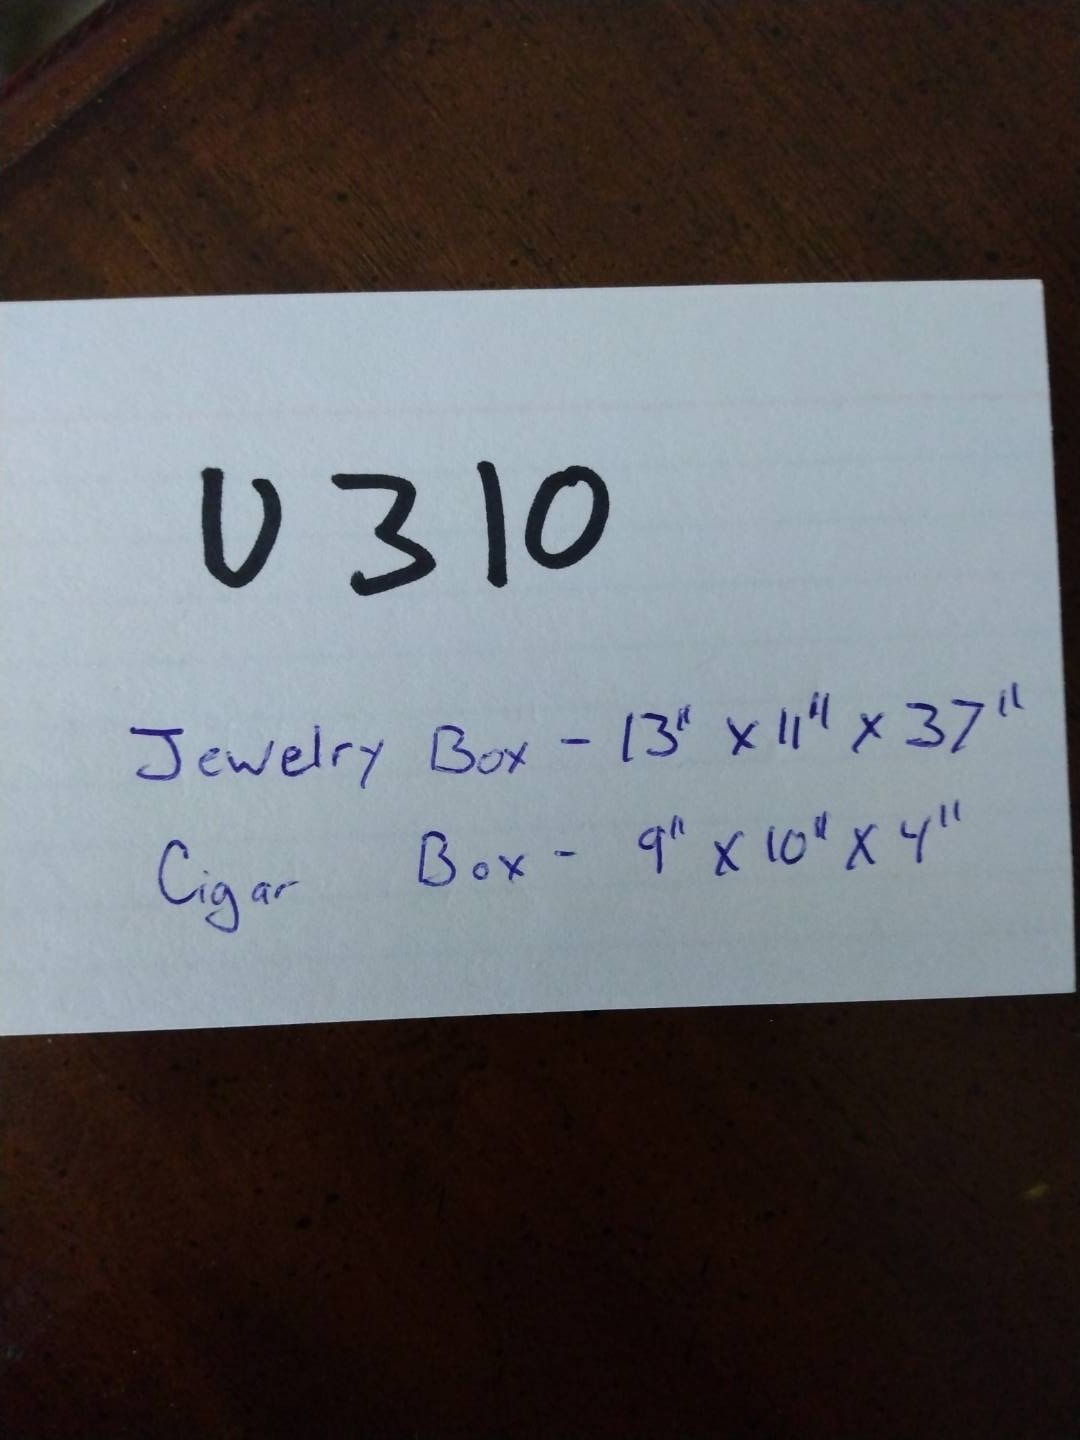 U 310
Jewelry Box - 13" x 11" x 37"
Cigar Box - 9" x 10" x 4"